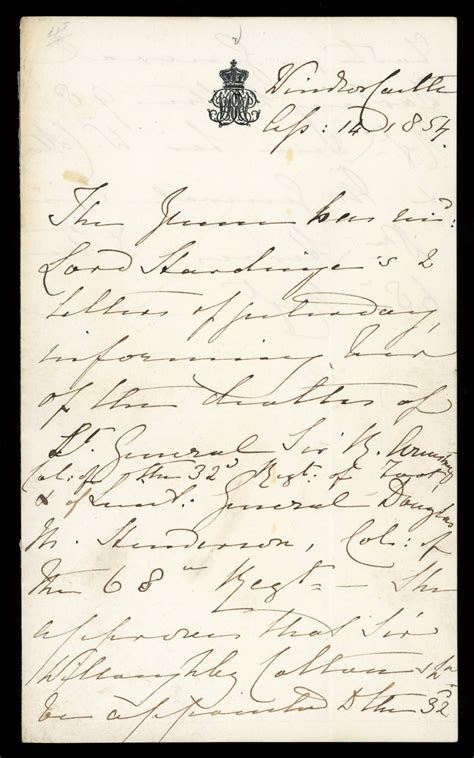 Windsor Castle
Ap: 14 1854.
The Queen has rec^d:
Lord Hardinge's 2
letters of yesterday,
informing her
of the deaths of
L^t. General Sir R. Armstrong
Col: of the 32^d Reg^t: of Foot
& of Lieut: General Douglas
M. Henderson, Col: of
the 68^th Reg^t — She
approves that Sir
Willoughby Cotton sh^d
be appointed to the 32^d